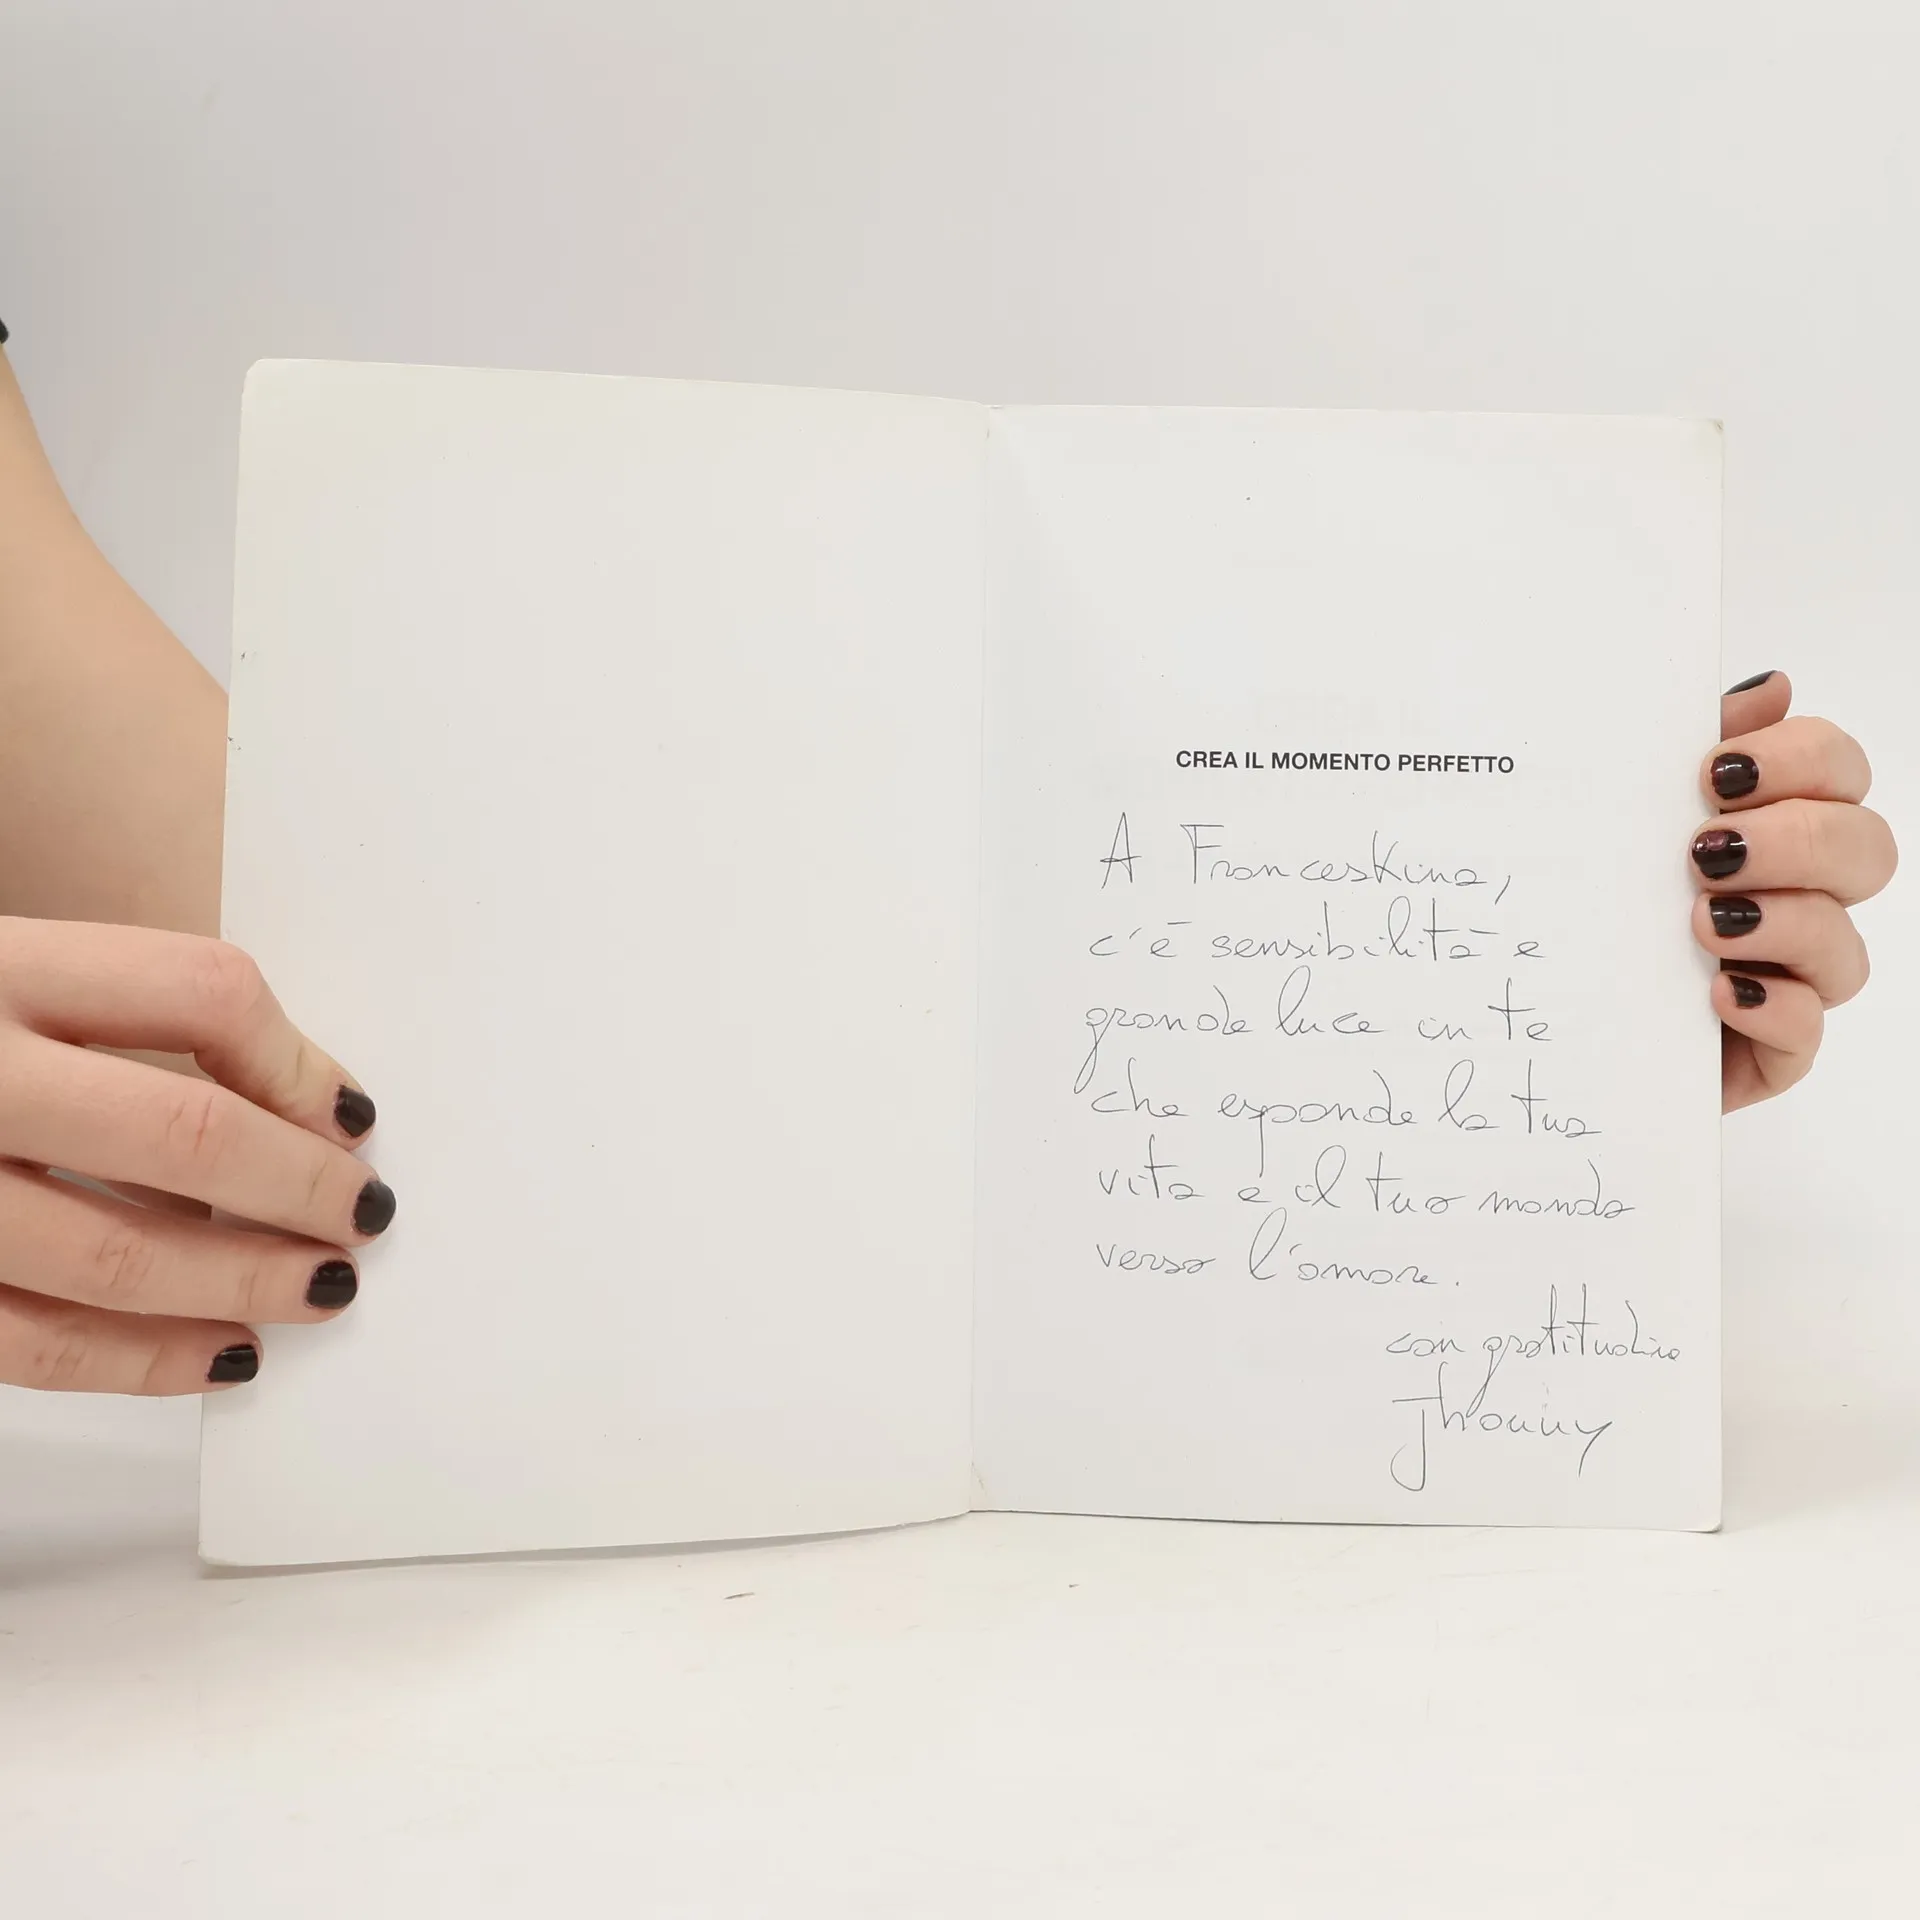 CREA IL MOMENTO PERFETTO
A Franceskina,
c'è sensibilità e
grande luce in te
che espande la tua
vita e il tuo mondo
verso l'amore.
con gratitudine
Jhonny